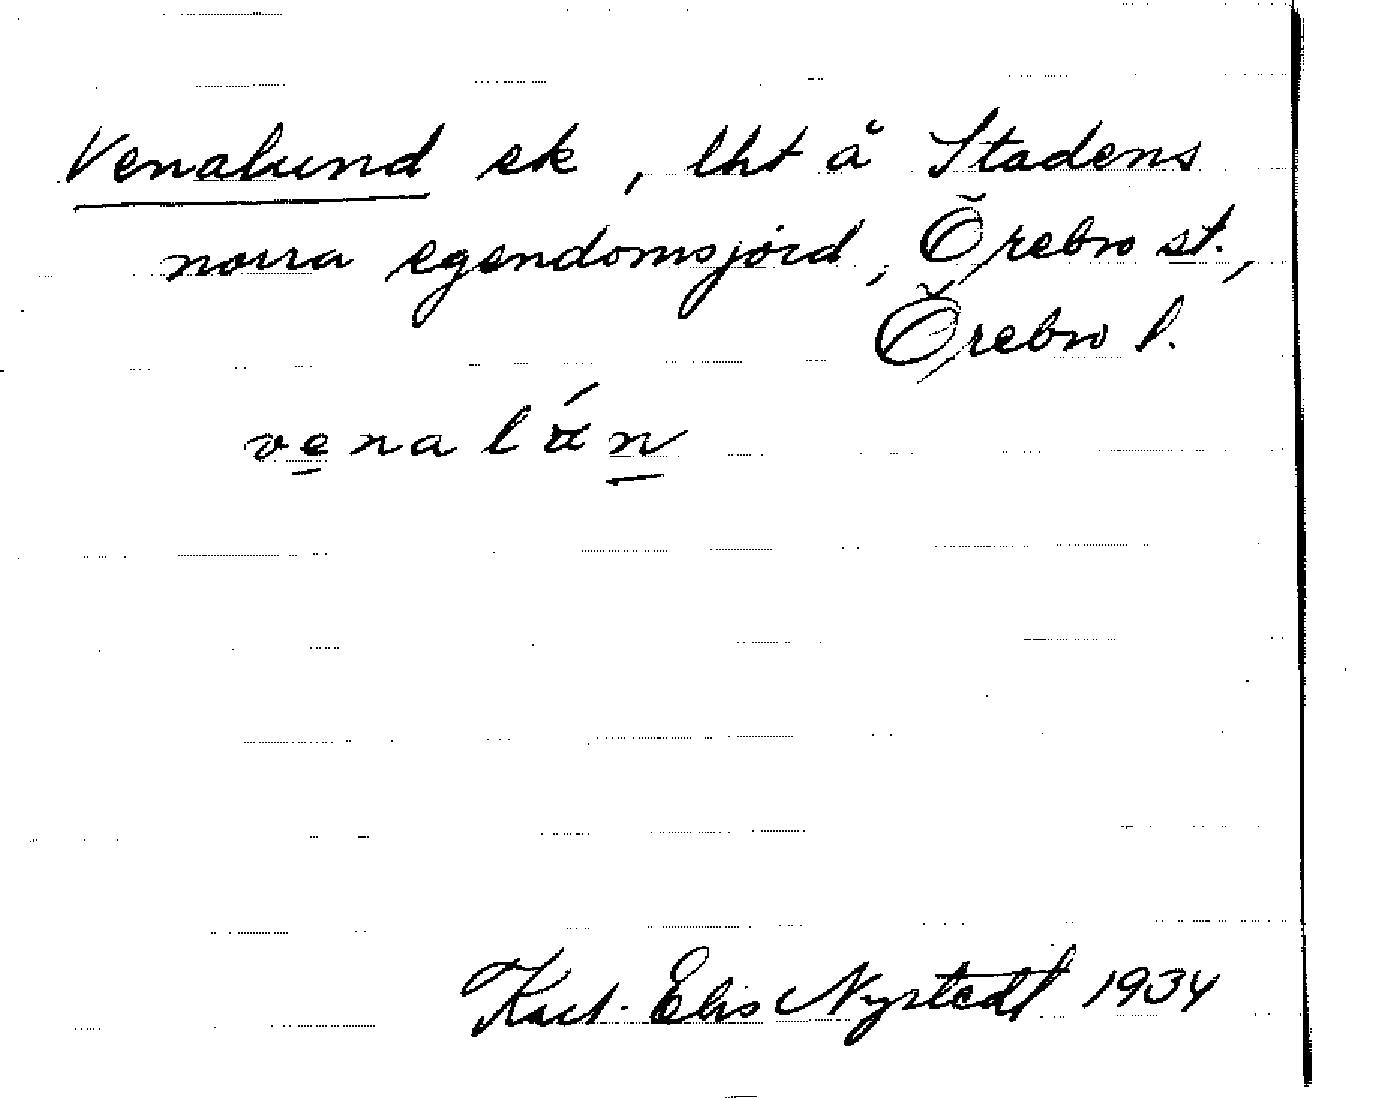 Venalund ek, lht å Stadens
norra egendomsjord, Örebro st.,
Örebro l.
venalán
Karl-Elis Nystedt 1934